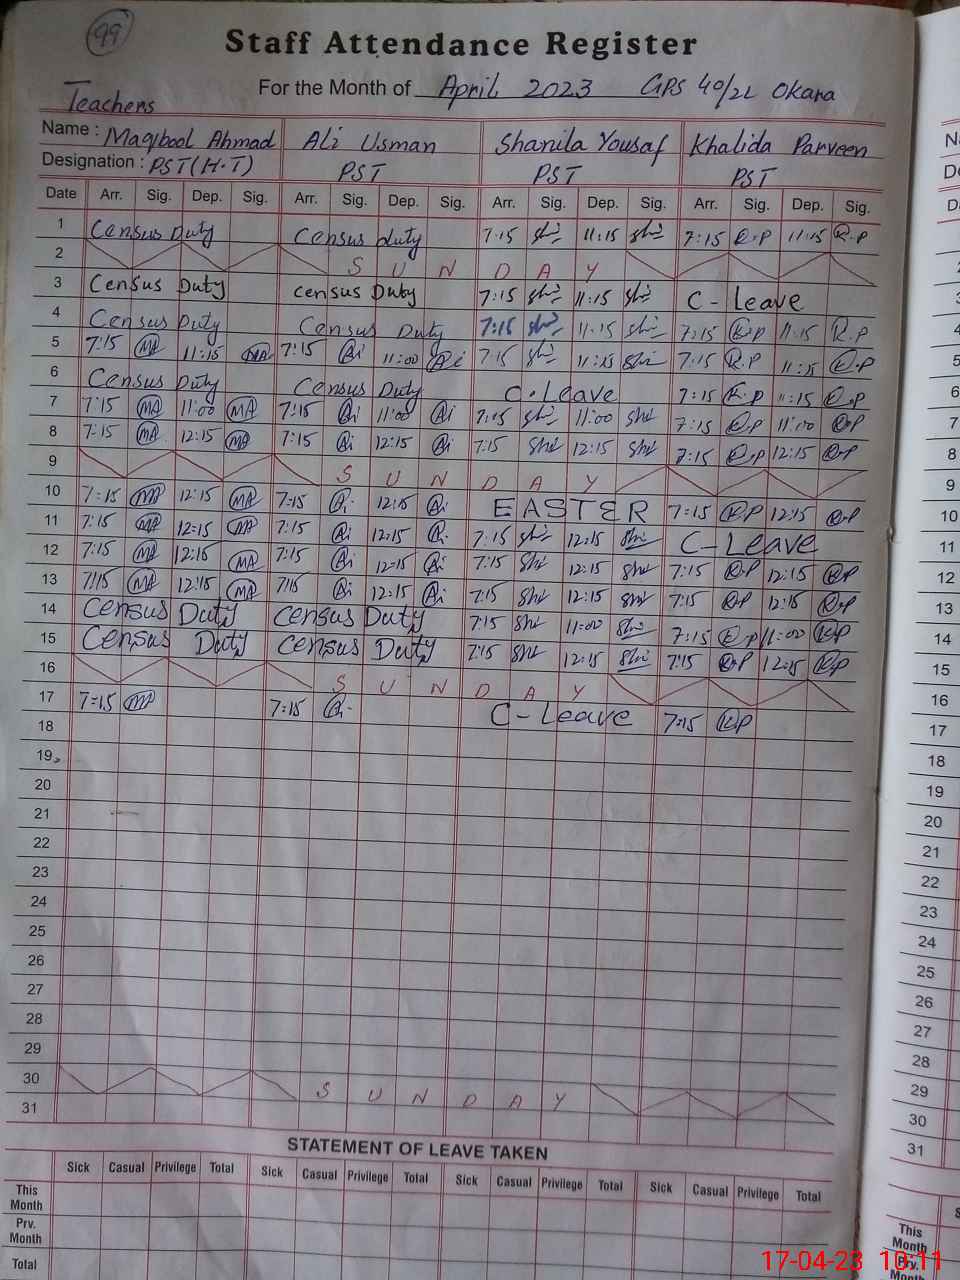 99
Staff Attendance Register
For the Month of April 2023 GPS 40/2L Okara
Teachers
Name : Maqbool Ahmad Ali Usman Shanila Yousaf Khalida Parveen
Designation : PST (H.T) PST PST PST
Date Arr. Sig. Dep. Sig. Arr. Sig. Dep. Sig. Arr. Sig. Dep. Sig. Arr. Sig. Dep. Sig.
1 Census Duty Census Duty 7:15 11:15 7:15 R.P 11:15 R.P
2 S U N D A Y
3 Census Duty Census Duty 7:15 11:15 C-Leave
4 Census Duty Census Duty 7:15 11:15 7:15 R.P 11:15 R.P
5 7:15 MA 11:15 MA 7:15 Ai 11:00 Ai 7:15 11:15 7:15 R.P 11:15 R.P
6 Census Duty Census Duty C-Leave 7:15 R.P 11:15 R.P
7 7:15 MA 11:00 MA 7:15 Ai 11:00 Ai 7:15 11:00 7:15 R.P 11:00 R.P
8 7:15 MA 12:15 MA 7:15 Ai 12:15 Ai 7:15 12:15 7:15 R.P 12:15 R.P
9 S U N D A Y
10 7:15 MA 12:15 MA 7:15 Ai 12:15 Ai EASTER 7:15 R.P 12:15 R.P
11 7:15 MA 12:15 MA 7:15 Ai 12:15 Ai 7:15 12:15 C-Leave
12 7:15 MA 12:15 MA 7:15 Ai 12:15 Ai 7:15 12:15 7:15 R.P 12:15 R.P
13 7:15 MA 12:15 MA 7:15 Ai 12:15 Ai 7:15 12:15 7:15 R.P 12:15 R.P
14 Census Duty Census Duty 7:15 11:00 7:15 R.P 11:00 R.P
15 Census Duty Census Duty 7:15 12:15 7:15 R.P 12:15 R.P
16 S U N D A Y
17 7:15 MA 7:15 Ai C-Leave 7:15 R.P
18
19
20
21
22
23
24
25
26
27
28
29
30 S U N D A Y
31
STATEMENT OF LEAVE TAKEN
Sick Casual Privilege Total Sick Casual Privilege Total Sick Casual Privilege Total Sick Casual Privilege Total
This Month
Prv. Month
Total
5
6
7
8
9
10
11
12
13
14
15
16
17
18
19
20
21
22
23
24
25
26
27
28
29
30
31
This Month
Prv. Month
17-04-23 10:11